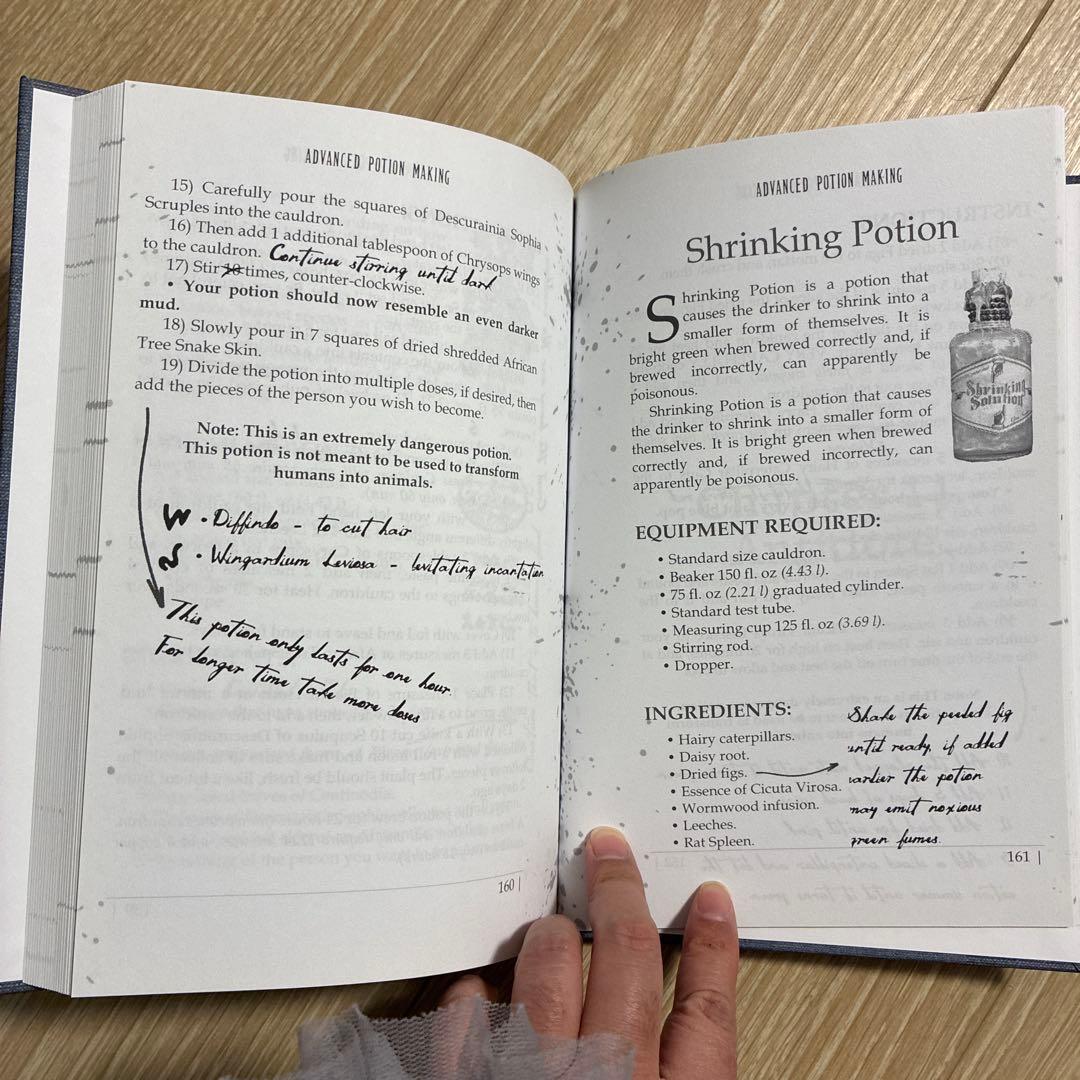 ADVANCED POTION MAKING
15) Carefully pour the squares of Descurainia Sophia
Scruples into the cauldron.
16) Then add 1 additional tablespoon of Chrysops wings
to the cauldron. Continue stirring until dark
17) Stir 10 times, counter-clockwise.
• Your potion should now resemble an even darker
mud.
18) Slowly pour in 7 squares of dried shredded African
Tree Snake Skin.
19) Divide the potion into multiple doses, if desired, then
add the pieces of the person you wish to become.
Note: This is an extremely dangerous potion.
This potion is not meant to be used to transform
humans into animals.
W • Diffindo - to cut hair
S • Wingardium Leviosa - levitating incantation
This potion only lasts for one hour.
For longer time take more doses
160 |
ADVANCED POTION MAKING
Shrinking Potion
Shrinking Potion is a potion that
causes the drinker to shrink into a
smaller form of themselves. It is
bright green when brewed correctly and, if
brewed incorrectly, can apparently be
poisonous.
Shrinking Potion is a potion that causes
the drinker to shrink into a smaller form of
themselves. It is bright green when brewed
correctly and, if brewed incorrectly, can
apparently be poisonous.
Shrinking
Solution
EQUIPMENT REQUIRED:
• Standard size cauldron.
• Beaker 150 fl. oz (4.43 l).
• 75 fl. oz (2.21 l) graduated cylinder.
• Standard test tube.
• Measuring cup 125 fl. oz (3.69 l).
• Stirring rod.
• Dropper.
INGREDIENTS:
• Hairy caterpillars.
• Daisy root.
• Dried figs.
• Essence of Cicuta Virosa.
• Wormwood infusion.
• Leeches.
• Rat Spleen.
Shake the peeled fig
until ready, if added
earlier the potion
may emit noxious
green fumes.
161 |